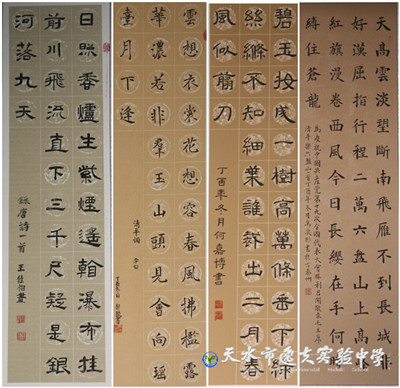 日照香爐生紫煙遙看瀑布挂
前川飛流直下三千尺疑是銀
河落九天
錄唐詩一首
雲想衣裳花想容春風拂檻露
華濃若非羣玉山頭見會向瑤
臺月下逢
清平調 李白
碧玉妝成一樹高萬條垂下綠
絲絛不知細葉誰裁出二月春
風似剪刀
丁酉年冬月何嘉博書
天高雲淡望斷南飛雁不到長城非
好漢屈指行程二萬六盤山上高峰
紅旗漫卷西風今日長纓在手何時
縛住蒼龍
天水市逸夫實驗中學